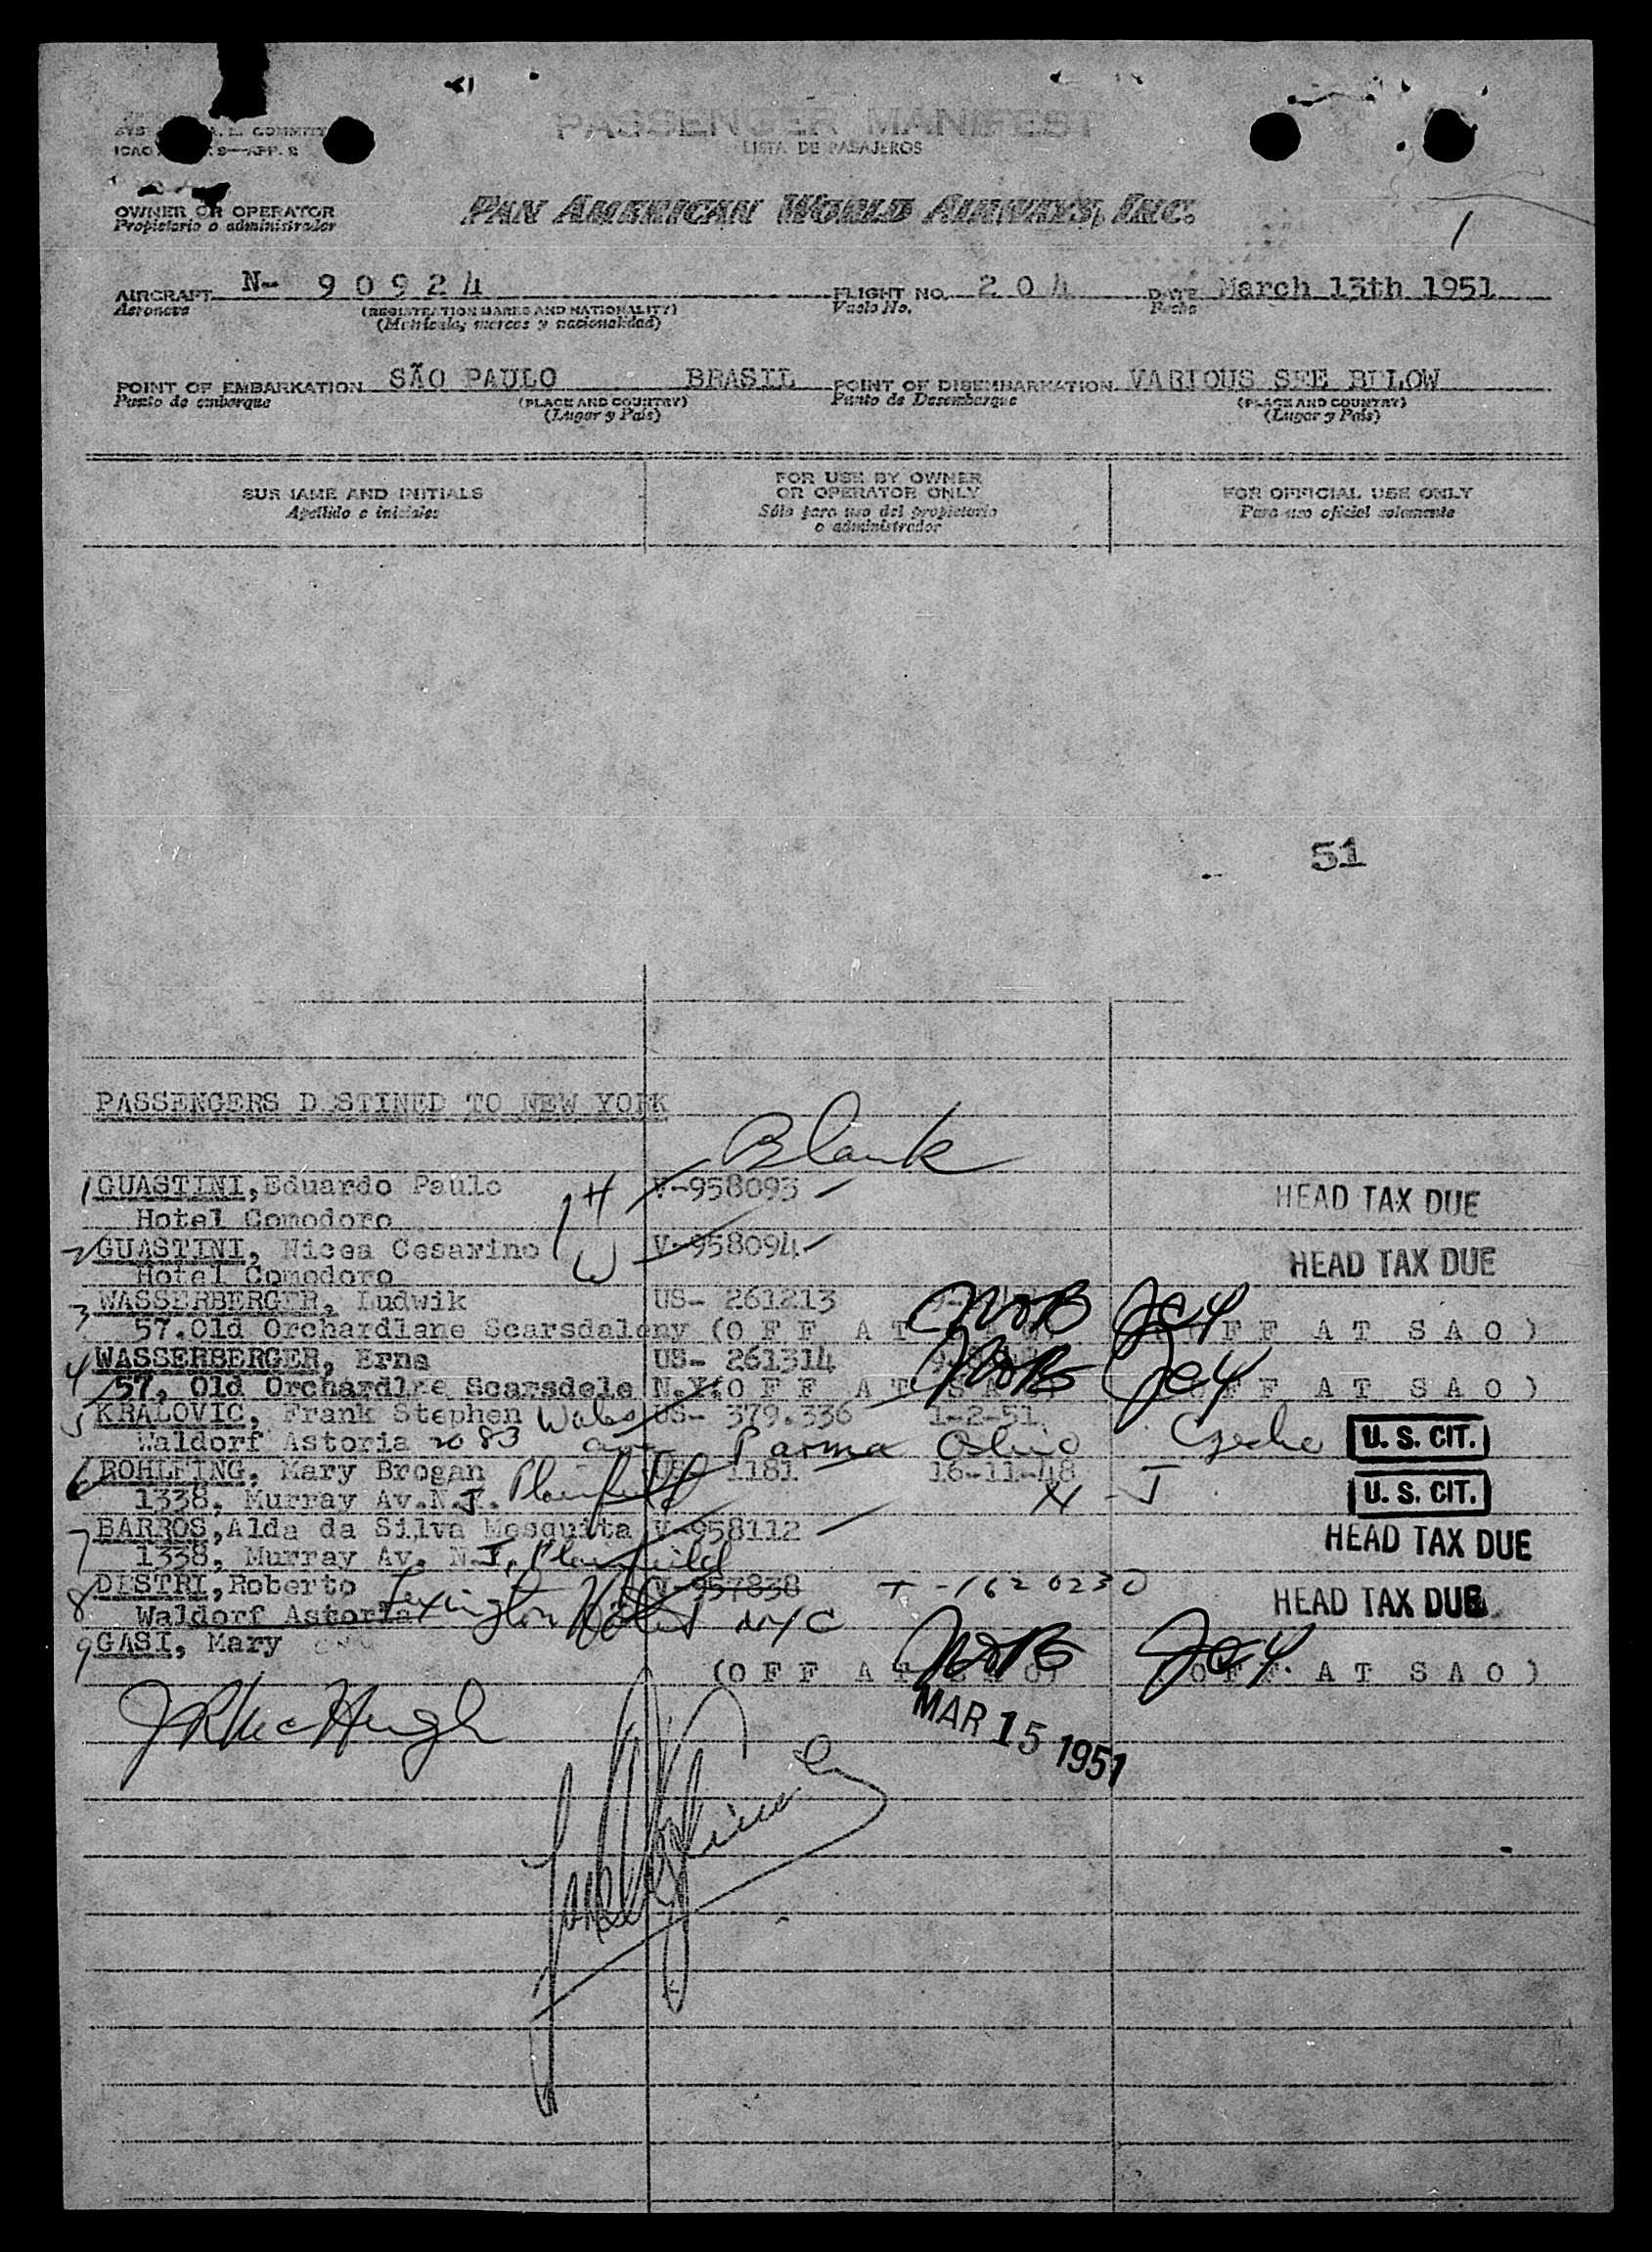 PASSENGER MANIFEST
LISTA DE PASAJEROS
OWNER OR OPERATOR
Propietario o administrador
PAN AMERICAN WORLD AIRWAYS, INC.
1
AIRCRAFT N- 90924 FLIGHT NO. 204 DATE March 13th 1951
Aeronave (REGISTRATION MARKS AND NATIONALITY) Vuelo No. Fecha
(Matricula, marcas y nacionalidad)
POINT OF EMBARKATION SÃO PAULO BRASIL POINT OF DISEMBARKATION VARIOUS SEE BELOW
Punto de embarque (PLACE AND COUNTRY) Punto de Desembarque (PLACE AND COUNTRY)
(Lugar y País) (Lugar y País)
SURNAME AND INITIALS FOR USE BY OWNER OR OPERATOR ONLY FOR OFFICIAL USE ONLY
Apellido e iniciales Sólo para uso del propietario o administrador Para uso oficial solamente
51
PASSENGERS D STINED TO NEW YORK
Blank
1 GUASTINI, Eduardo Paulo H V-958093 HEAD TAX DUE
Hotel Comodoro
2 GUASTINI, Nicea Cesarino W V-958094 HEAD TAX DUE
Hotel Comodoro
3 WASSERBERGER, Ludwik US- 261213 NOB
57.Old Orchardlane Scarsdaleny (OFF AT OFF AT SAO)
4 WASSERBERGER, Erna US- 261314 NOB
57, Old Orchardlne Scarsdele N.Y. OFF AT SAO OFF AT SAO)
5 KRALOVIC, Frank Stephen Wales US- 379.336 1-2-51
Waldorf Astoria 2083 Parma Ohio Czecho U. S. CIT.
6 ROHLFING, Mary Brogan Plainfield US- 1181 16-11-48
1338, Murray Av.N.J. N-J U. S. CIT.
7 BARROS, Alda da Silva Mesquita V-958112 HEAD TAX DUE
1338, Murray Av. N.J. Plainfield
8 DISTRI, Roberto V-957838 T-1620230 HEAD TAX DUE
Waldorf Astoria Lexington Hotel NYC
9 GASI, Mary NOB
(OFF AT SAO) OFF AT SAO)
JR McHugh
MAR 15 1951